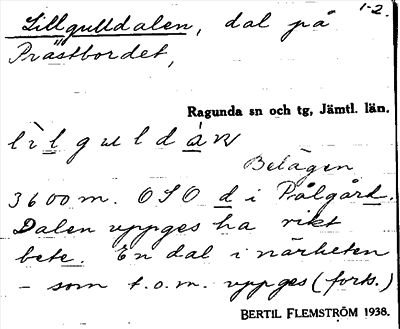 Lillgulldalen, dal på 1-2.
Prästbordet,
Ragunda sn och tg, Jämtl. län.
lìlguldáṇ
Belägen
3600 m. OSO d i Pålgård.
Dalen uppges ha rikt
bete. En dal i närheten
- som t.o.m. uppges (forts.)
BERTIL FLEMSTRÖM 1938.